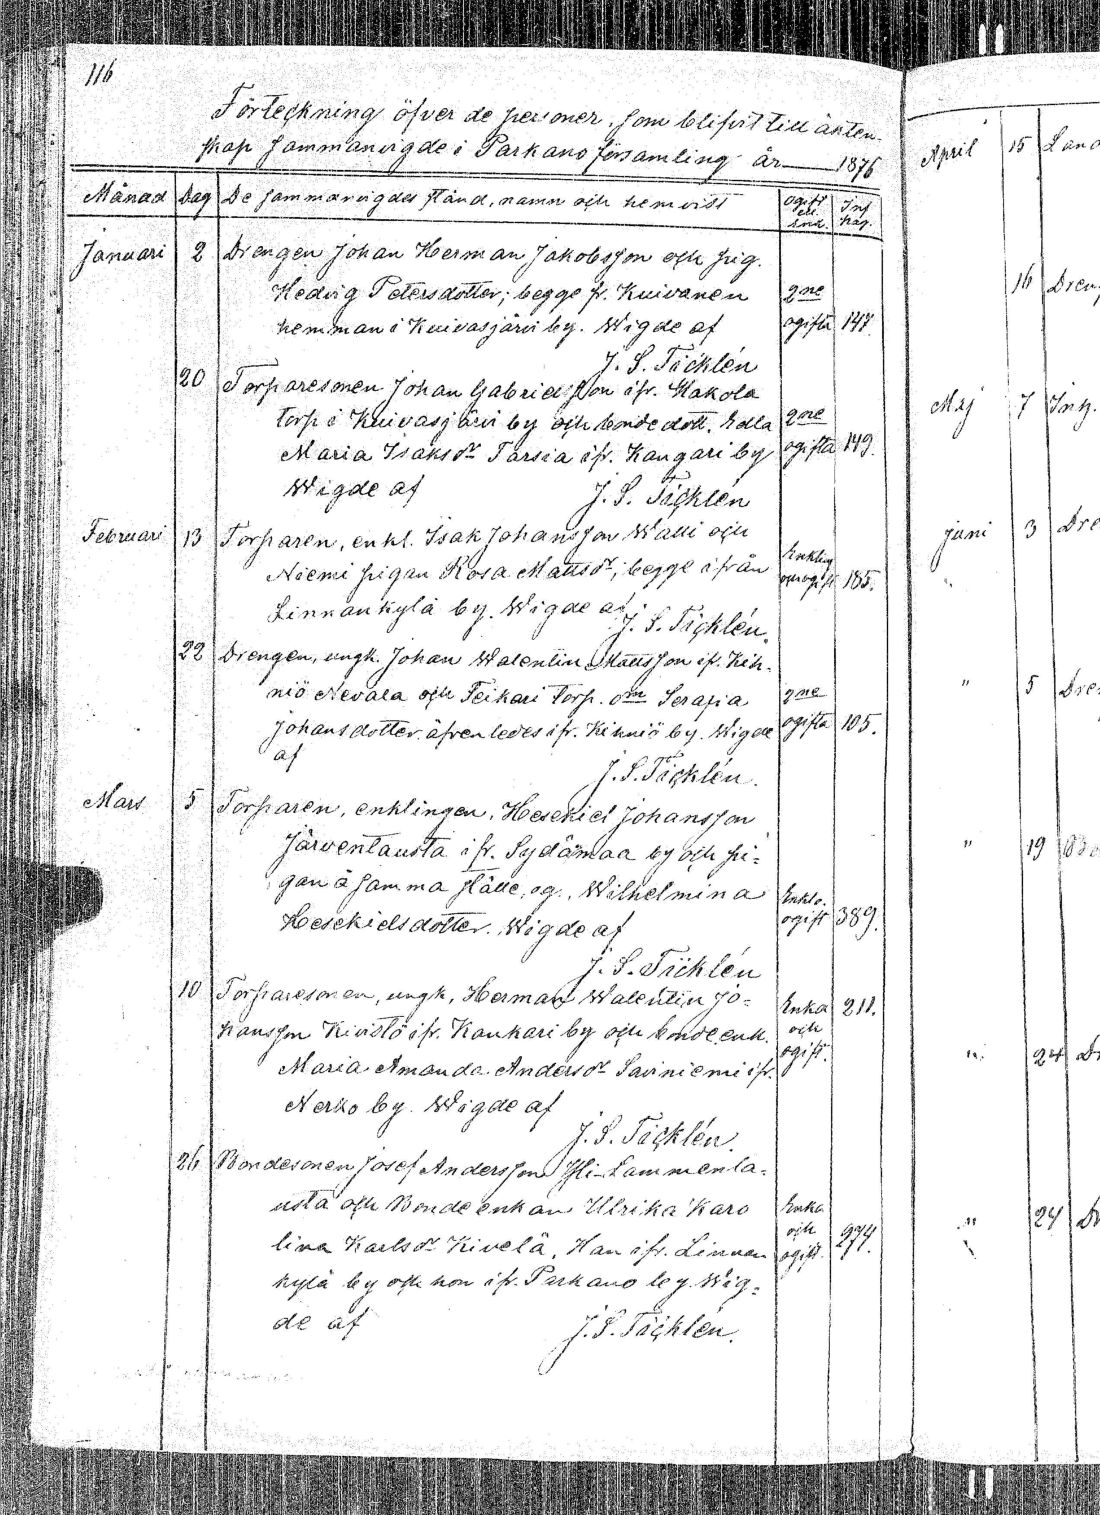 116
Förteckning öfver de personer, som blifvit till äkten-
skap sammanvigde i Parkano församling år 1876
Månad Dag De sammanvigdes stånd, namn och hemvist ogift ell. Inf. pag.
Januari 2 Drengen Johan Herman Jakobsson och pig.
Hedvig Petersdotter; begge fr. Kuivanen 2ne
hemman i Kuivasjärvi by. Wigde af ogifta 147.
J. S. Täcklén
20 Torparesonen Johan Gabrielsson ifr. Makola
torp i Kuivasjärvi by och bondedott. Edla 2ne
Maria Isaksdr Tarsia ifr. Kangari by ogifta 149.
Wigde af J. S. Täcklén
Februari 13 Torparen, enkl. Isak Johansson Walli och
Niemi pigan Rosa Mattsdr, begge ifrån Enkling och ogift 185.
Linnankylä by. Wigde af.
J. S. Täcklén.
22 Drengen, ungk. Johan Walentin Mattsson ifr. Kih-
niö Nevala och Teikari torp. Serafia 2ne
Johansdotter äfvenledes ifr. Kihniö by. Wigde ogifta 105.
af
J. S. Täcklén.
Mars 5 Torparen, enklingen, Hesekiel Johansson
Järventausta ifr. Sydänmaa by och pi-
gan å samma ställe, og., Wilhelmina Enkl. o.
Hesekielsdotter. Wigde af ogift 389.
J. S. Täcklén
10 Torparesonen, ungk, Herman Walentin Jo- Enka 211.
hansson Kivistö ifr. Kankari by och bonde enk. och
Maria Amanda Andersdr Saviniemi ifr. ogift.
Nerko by. Wigde af
J. S. Täcklén.
26 Bondesonen Josef Andersson Yli-Lammenta-
usta och Bonde enkan Ulrika Karo Enka
lina Karlsdr Kivelä, Han ifr. Linnan och ogift. 274.
kylä by och hon ifr. Parkano by. Wig-
de af J. S. Täcklén.
April 15
16 Dreng
Maj 7
juni 3 Dre
" 5 Dren
" 19
" 24 Dr
" 24 Dr